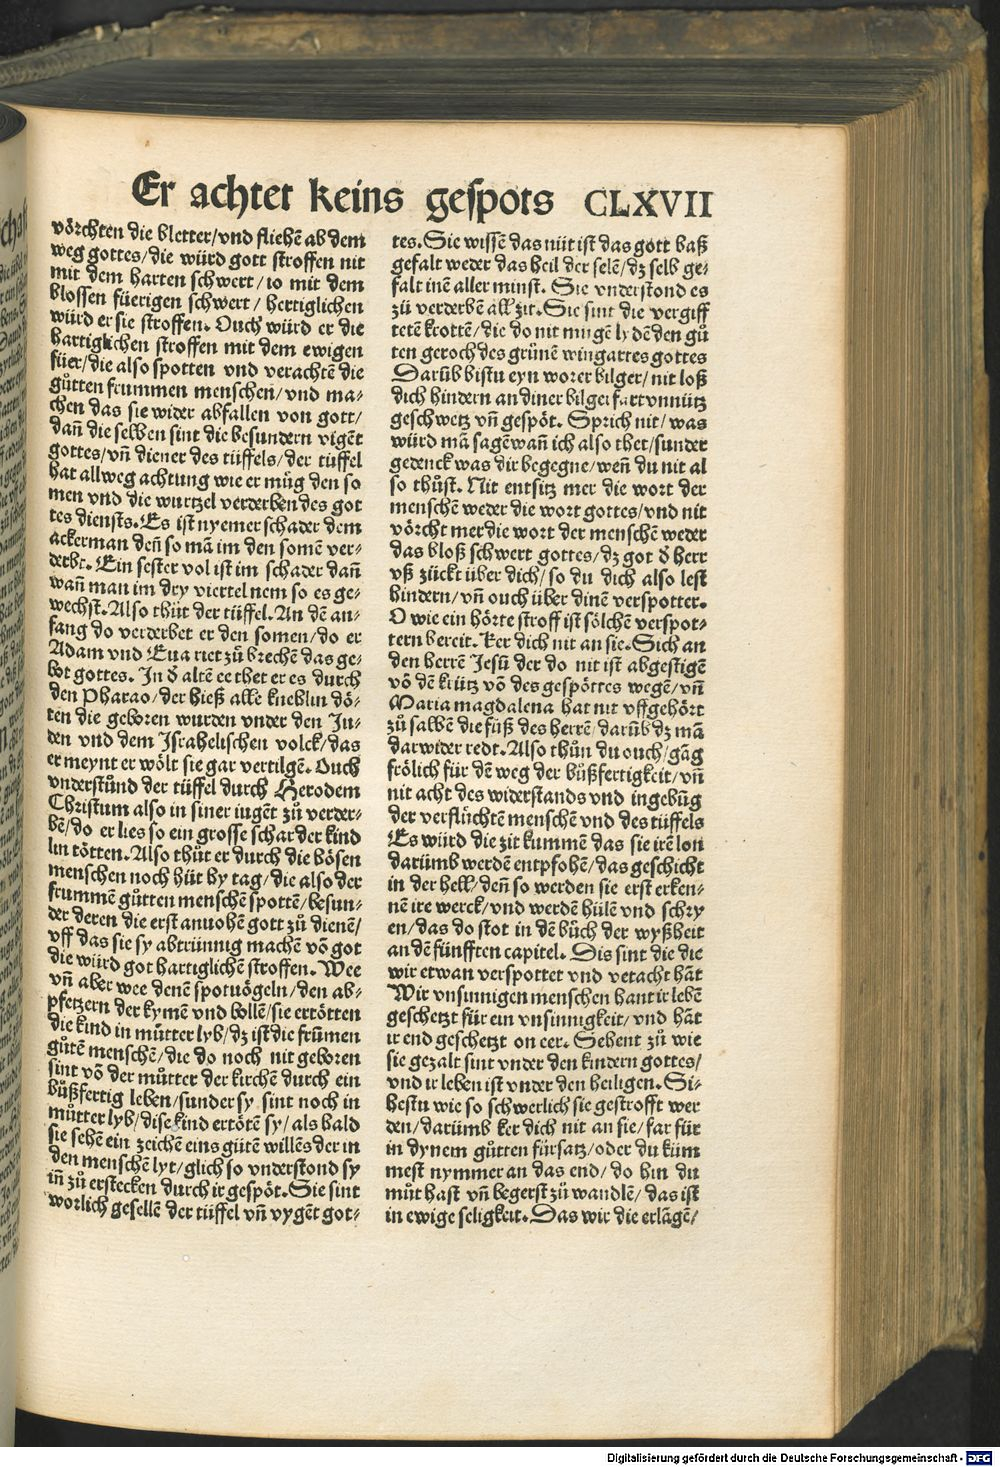 Er achtet keins gespots CLXVII
vörchten die bletter/vnd fliehē ab dem
weg gottes/die würd gott stroffen nit
mit dem harten schwert/io mit dem
blossen füerigen schwert/hertiglichen
würd er sie stroffen. Ouch würd er die
hartiglichen stroffen mit dem ewigen
füer/die also spotten vnd verachtē die
gůtten frummen menschen/vnd ma-
chen das sie wider abfallen von gott/
dañ die selben sint die besundern vigēt
gottes/vñ diener des tüffels/der tüffel
hat allweg achtung wie er müg den so
men vnd die wurtzel verderben des got
tes diensts. Es ist nyemer schader dem
ackerman deñ so mā im den somē ver-
derbt. Ein sester vol ist im schader dañ
wañ man im dry viertel nem so es ge-
wechst. Also thůt der tüffel. An dē an-
fang do verderbet er den somen/do er
Adam vnd Eua riet zů brechē das ge-
bot gottes. In ð altē ee thet er es durch
den Pharao/der hieß alle kneblin dö-
ten die geboren wurden vnder den Ju-
den vnd dem Israhelischen volck/das
er meynt er wölt sie gar vertilgē. Ouch
vnderstůnd der tüffel durch Herodem
Christum also in siner iugēt zů verder-
bē/do er lies so ein grosse schar der kind
lin tötten. Also thůt er durch die bösen
menschen noch hüt by tag/die also der
frummē gůtten menschē spottē/besun-
der deren die erst anuohē gott zů dienē/
vff das sie sy abtrünnig machē vō got
die würd got hartiglichē stroffen. Wee
vñ aber wee denē spotuögeln/den ab-
pfetzern der kymē vnd bollē/sie ertötten
die kind in můtter lyb/dz ist die frūmen
gůtē menschē/die do noch nit geboren
sint vō der můtter der kirchē durch ein
bůßfertig leben/sunder sy sint noch in
můtter lyb/dise kind ertötē sy/als bald
sie sehē ein zeichē eins gůtē willēs der in
den menschē lyt/glich so vnderstond sy
iñ zů erstecken durch ir gespöt. Sie sint
worlich gesellē der tüffel vñ vygēt got-
tes. Sie wissē das nüt ist das gott baß
gefalt weder das heil der selē/dz selb ge-
falt inē aller minst. Sie vnderstond es
zů verderbē all zit. Sie sint die vergiff
tetē krottē/die do nit mügē lydē den gů
ten geroch des grünē wingartes gottes
Darūb bistu eyn worer bilger/nit loß
dich hindern an diner bilgerfart vnnütz
geschwetz vñ gespöt. Sprich nit/was
würd mā sagē wañ ich also thet/sunder
gedenck was dir begegne/weñ du nit al
so thůst. Nit entsitz mer die wort der
menschē weder die wort gottes/vnd nit
vörcht mer die wort der menschē weder
das bloß schwert gottes/dz got ð herr
vß zückt über dich/so du dich also lest
hindern/vñ ouch über dinē verspotter.
O wie ein hörte stroff ist sölchē verspot-
tern bereit. Ker dich nit an sie. Sich an
den herrē Jesū der do nit ist abgestigē
vō dē krütz vō des gespöttes wegē/vñ
Maria magdalena hat nit vffgehört
zů salbē die füß des herrē/darūb dz mā
darwider redt. Also thůn du ouch/gāg
frölich für dē weg der bůßfertigkeit/vñ
nit acht des widerstands vnd ingebüg
der verflůchtē menschē vnd des tüffels
Es würd die zit kummē das sie irē lon
darūmb werdē entpfohē/das geschicht
in der hell/deñ so werden sie erst erken-
nē ire werck/vnd werdē hülē vnd schry
en/das do stot in dē bůch der wyßheit
an dē fünfften capitel. Dis sint die die
wir etwan verspottet vnd vetacht hāt
Wir vnsinnigen menschen hant ir lebē
geschetzt für ein vnsinnigkeit/vnd hāt
ir end geschetzt on eer. Sehent zů wie
sie gezalt sint vnder den kindern gottes/
vnd ir leben ist vnder den heiligen. Si-
hestu wie so schwerlich sie gestrofft wer
den/darümb ker dich nit an sie/far für
in dynem gůtten fürsatz/oder du küm
mest nymmer an das end/do hin du
můt hast vñ begerst zů wandlē/das ist
in ewige seligkeit. Das wir die erlāgē/
Digitalisierung gefördert durch die Deutsche Forschungsgemeinschaft - DFG